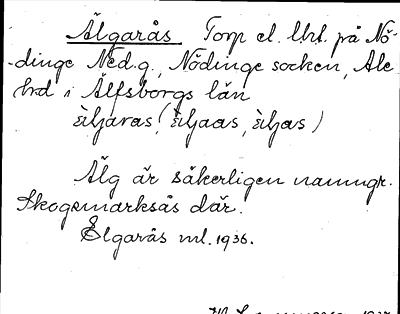 Älgarås Torp el. lht. på Nö-
dinge Ned.g., Nödinge socken, Ale
hd i Älfsborgs län
Älg är säkerligen namngr.
Skogsmarksås där.
Elgarås ml. 1936.